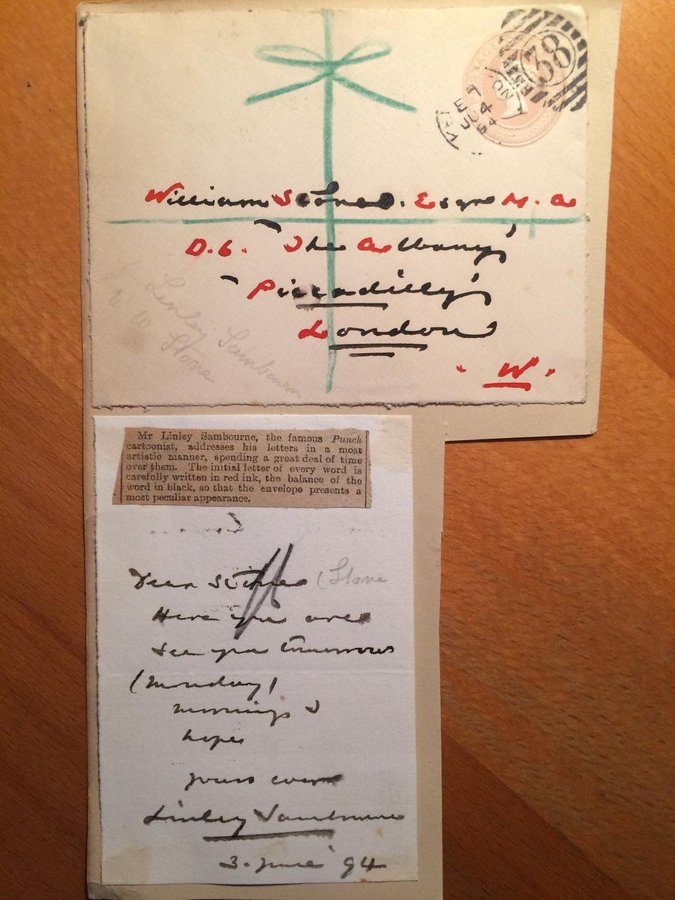 38
JU 4
94
William Stone. Esqre M. A
D.6. The Albany
Piccadilly
London
W.
Linley Sambourne
to W. Stone
Mr Linley Sambourne, the famous Punch
cartoonist, addresses his letters in a most
artistic manner, spending a great deal of time
over them. The initial letter of every word is
carefully written in red ink, the balance of the
word in black, so that the envelope presents a
most peculiar appearance.
Dear Stone (Stone
Here you are
See you tomorrow
(Monday)
morning I
hope
yours ever
Linley Sambourne
3. June 94